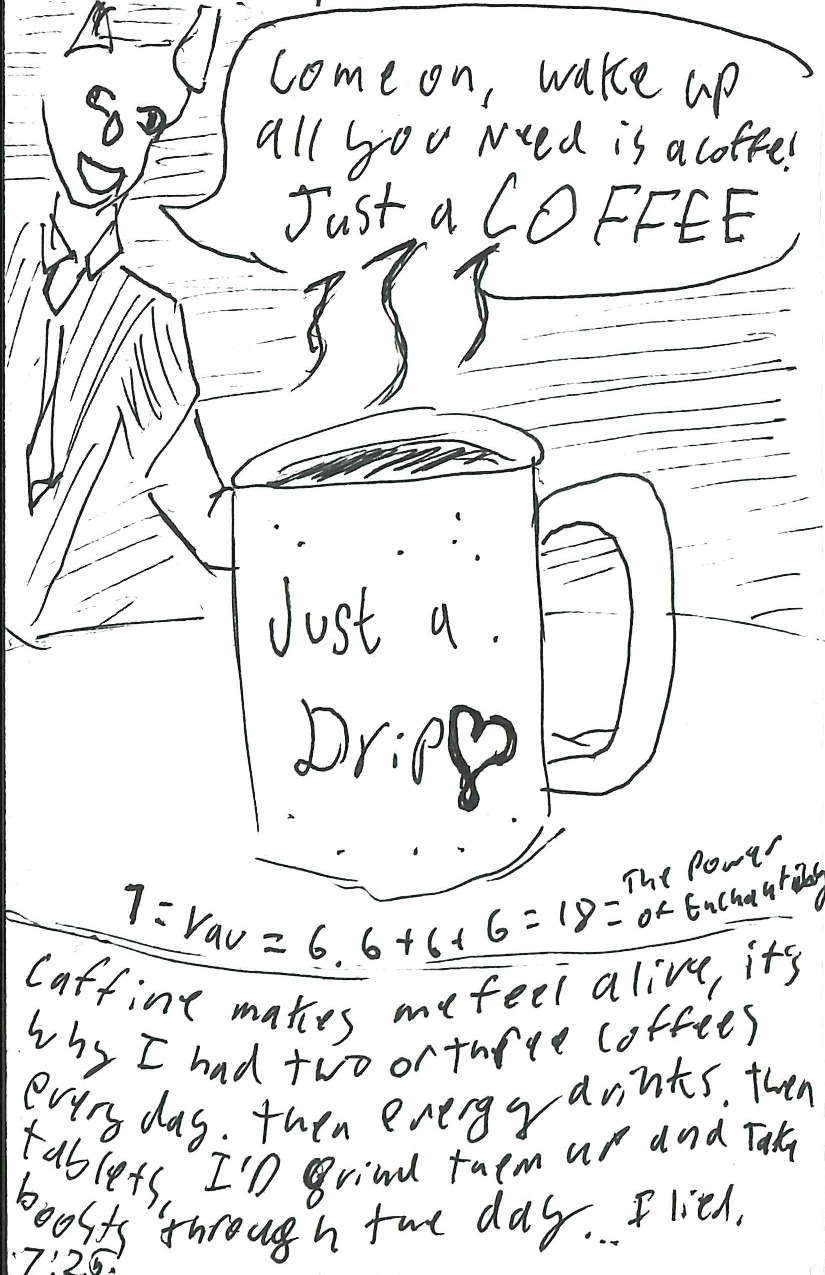 Come on, wake up
all you need is a coffe!
Just a COFFEE
Just a.
Drip
= vav = 6. 6+6+6 = 18 =
The Power
of
Caffine makes me feel alive, it's
why I had two or three coffees
every day. then energy drinks. then
tablets, I'D grind them up and Take
boosts through the day... I lied.
7:25.